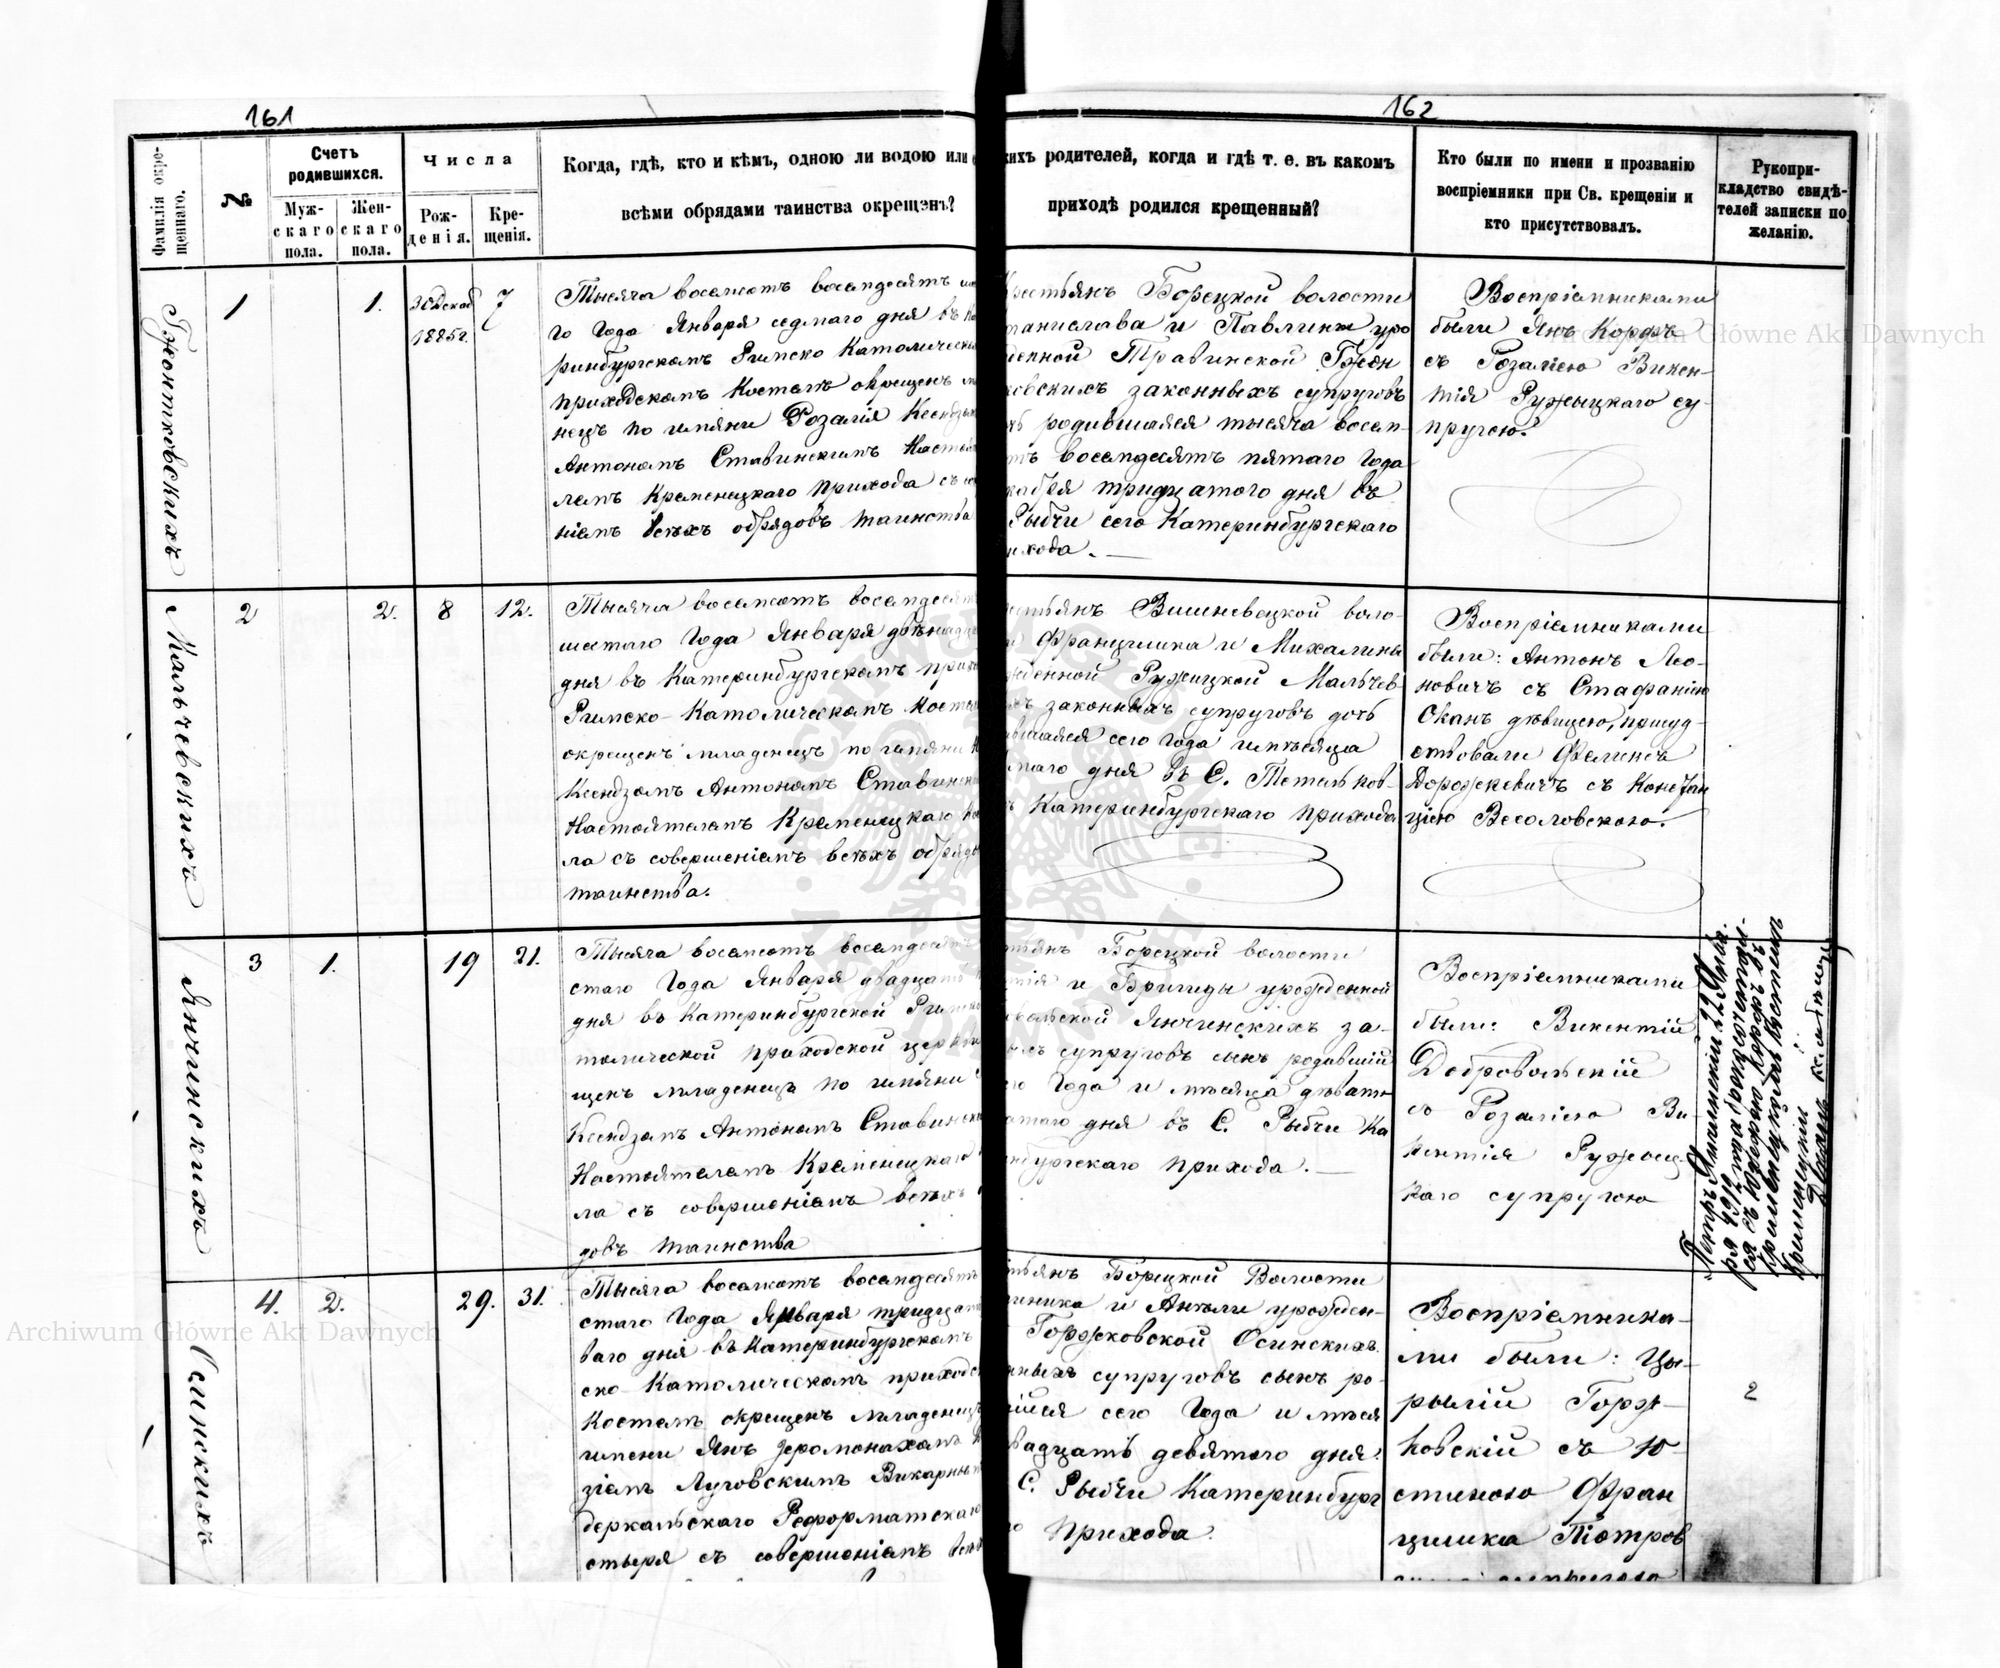 161
162
Фамилія окре-
щеннаго.
№
Счетъ
родившихся.
Муж-
скаго
пола.
Жен-
скаго
пола.
Числа
Рож-
денія.
Кре-
щенія.
Когда, гдѣ, кто и кѣмъ, одною ли водою или
всѣми обрядами таинства окрещенъ?
кихъ родителей, когда и гдѣ т. е. въ какомъ
приходѣ родился крещенный?
Кто были по имени и прозванію
воспріемники при Св. крещеніи и
кто присутствовалъ.
Рукопри-
кладство свидѣ-
телей записки по
желанію.
Гжонтковскихъ
1
1.
30 Декаб
1885 г.
7
Тысяча восемсотъ восемдесятъ
го Года Января седмаго дня въ
ринбургскомъ Римско Католическ
приходскомъ Костелѣ окрещенъ
нецъ по имени Розалія Ксендз
Антономъ Ставинскимъ Настоя
лемъ Кременецкаго прихода съ
ніемъ всѣхъ обрядовъ таинства
Крестьянъ Борецкой волости
танислава и Павлины уро
денной Травинской Гжон
ковскихъ законныхъ супруговъ
родившаяся тысяча восем-
тъ восемдесятъ пятаго Года
кабря тридцатого дня въ
Рыбчи сего Катеринбургскаго
ихода. —
Воспріемниками
были Янъ Корфъ
съ Розаліею Викен-
тія Ружыцкаго су-
пругою.
Мальчевскихъ
2
2.
8
12.
Тысяча восемсотъ восемдесят
шестаго Года Января двѣнадц
дня въ Катеринбургскомъ прих
Римско-Католическомъ Косте
окрещенъ младенецъ по имени
Ксендзомъ Антономъ Ставинск
Настоятелемъ Кременецкаго Ко
ла съ совершеніемъ всѣхъ обрядо
таинства.
стьянъ Вишневецкой воло-
и Францишка и Михалины
жденной Ружицкой Мальчев
хъ законныхъ супруговъ дочь
вшаяся сего Года и мѣсяца
маго дня въ С. Тетильков-
Катеринбургскаго прихода
Воспріемниками
были: Антонъ Лео-
новичъ съ Стафаніею
Оканъ дѣвицею, присуд-
ствовали Феликсъ
Дорожкевичъ съ Констан
цію Весоловскою.
Янчинскихъ
3
1.
19
21.
Тысяча восемсотъ восемдесятъ
стаго Года Января двадцать
дня въ Катеринбургской Римско
толической приходской церкви
щенъ младенецъ по имени
Ксендзомъ Антономъ Ставинск
Настоятелемъ Кременецкаго
ла съ совершеніемъ всѣхъ
довъ таинства
тьянъ Борецкой волости
тія и Бригиды урожденной
вольской Янчинскихъ за-
хъ супруговъ сынъ родивший
Года и мѣсяца дѣвятн
атого дня въ С. Рыбчи Ка
нбургскаго прихода. —
Воспріемниками
были: Викентій
Добровольскій
съ Розаліею Ви-
кентія Ружыц
каго супругою
Петръ Янчинскій 22 Янва-
ря 1910
Осинскихъ
4.
2.
29.
31.
Тысяча восемсотъ восемдесятъ
стаго Года Января тридцать
ваго дня въ Катеринбургскомъ
ско-Католическомъ приходск
Костелѣ окрещенъ младенецъ
имени Янъ Іеромонахомъ
зіемъ Луговскимъ Викарны
деркальскаго Реформатскаго
стыря съ совершеніемъ всѣ
тьянъ Борецкой Волости
иника и Анели урожден-
Горжковской Осинскихъ
нныхъ супруговъ сынъ ро-
ійся сего Года и мѣся
вадцать девятого дня
С. Рыбчи Катеринбург
го прихода.
Воспріемника-
ми были: Цы-
рылій Горж-
ковскій съ Ю-
стиною Фран
цишка Піотров
2
Archiwum Główne Akt Dawnych
Archiwum Główne Akt Dawnych